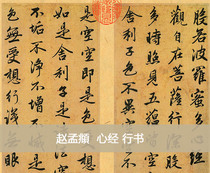 般若波羅蜜多
觀自在菩薩行深般
多時照見五蘊
舍利子色不異
是空空即是色
如是舍利子是
不垢不淨不增不減是
色無受想行識無眼
赵孟頫 心经 行书